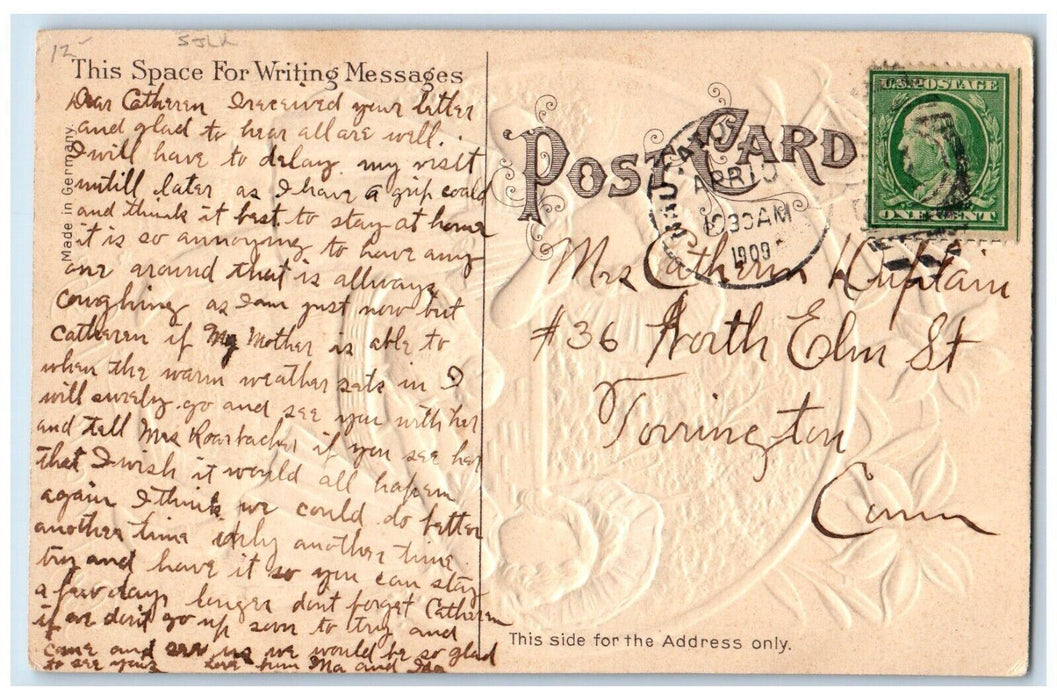 12-
SJLL
This Space For Writing Messages
Dear Catheren I received your letter
and glad to hear all are well.
I will have to delay my visit
untill later as I have a grip could
and think it best to stay at home
it is so annoying to have any
one around that is allways
coughing as I am just now but
Catheren if My Mother is able to
when the warm weather sets in I
will surely go and see you with her
and tell Mrs Roarbacher if you see her
that I wish it would all hapen
again I think we could do better
another time only another time
try and have it so you can stay
a few days longer dont forget Catheren
if we dont go up soon to try and
come and see us we would be so glad
to see you Love from Ma and Ida
Made in Germany.
POST CARD
APR 15
10 30 AM
1909
U.S. POSTAGE
ONE CENT
Mrs Catheren Huptain
#36 North Elm St
Torrington
Conn
This side for the Address only.